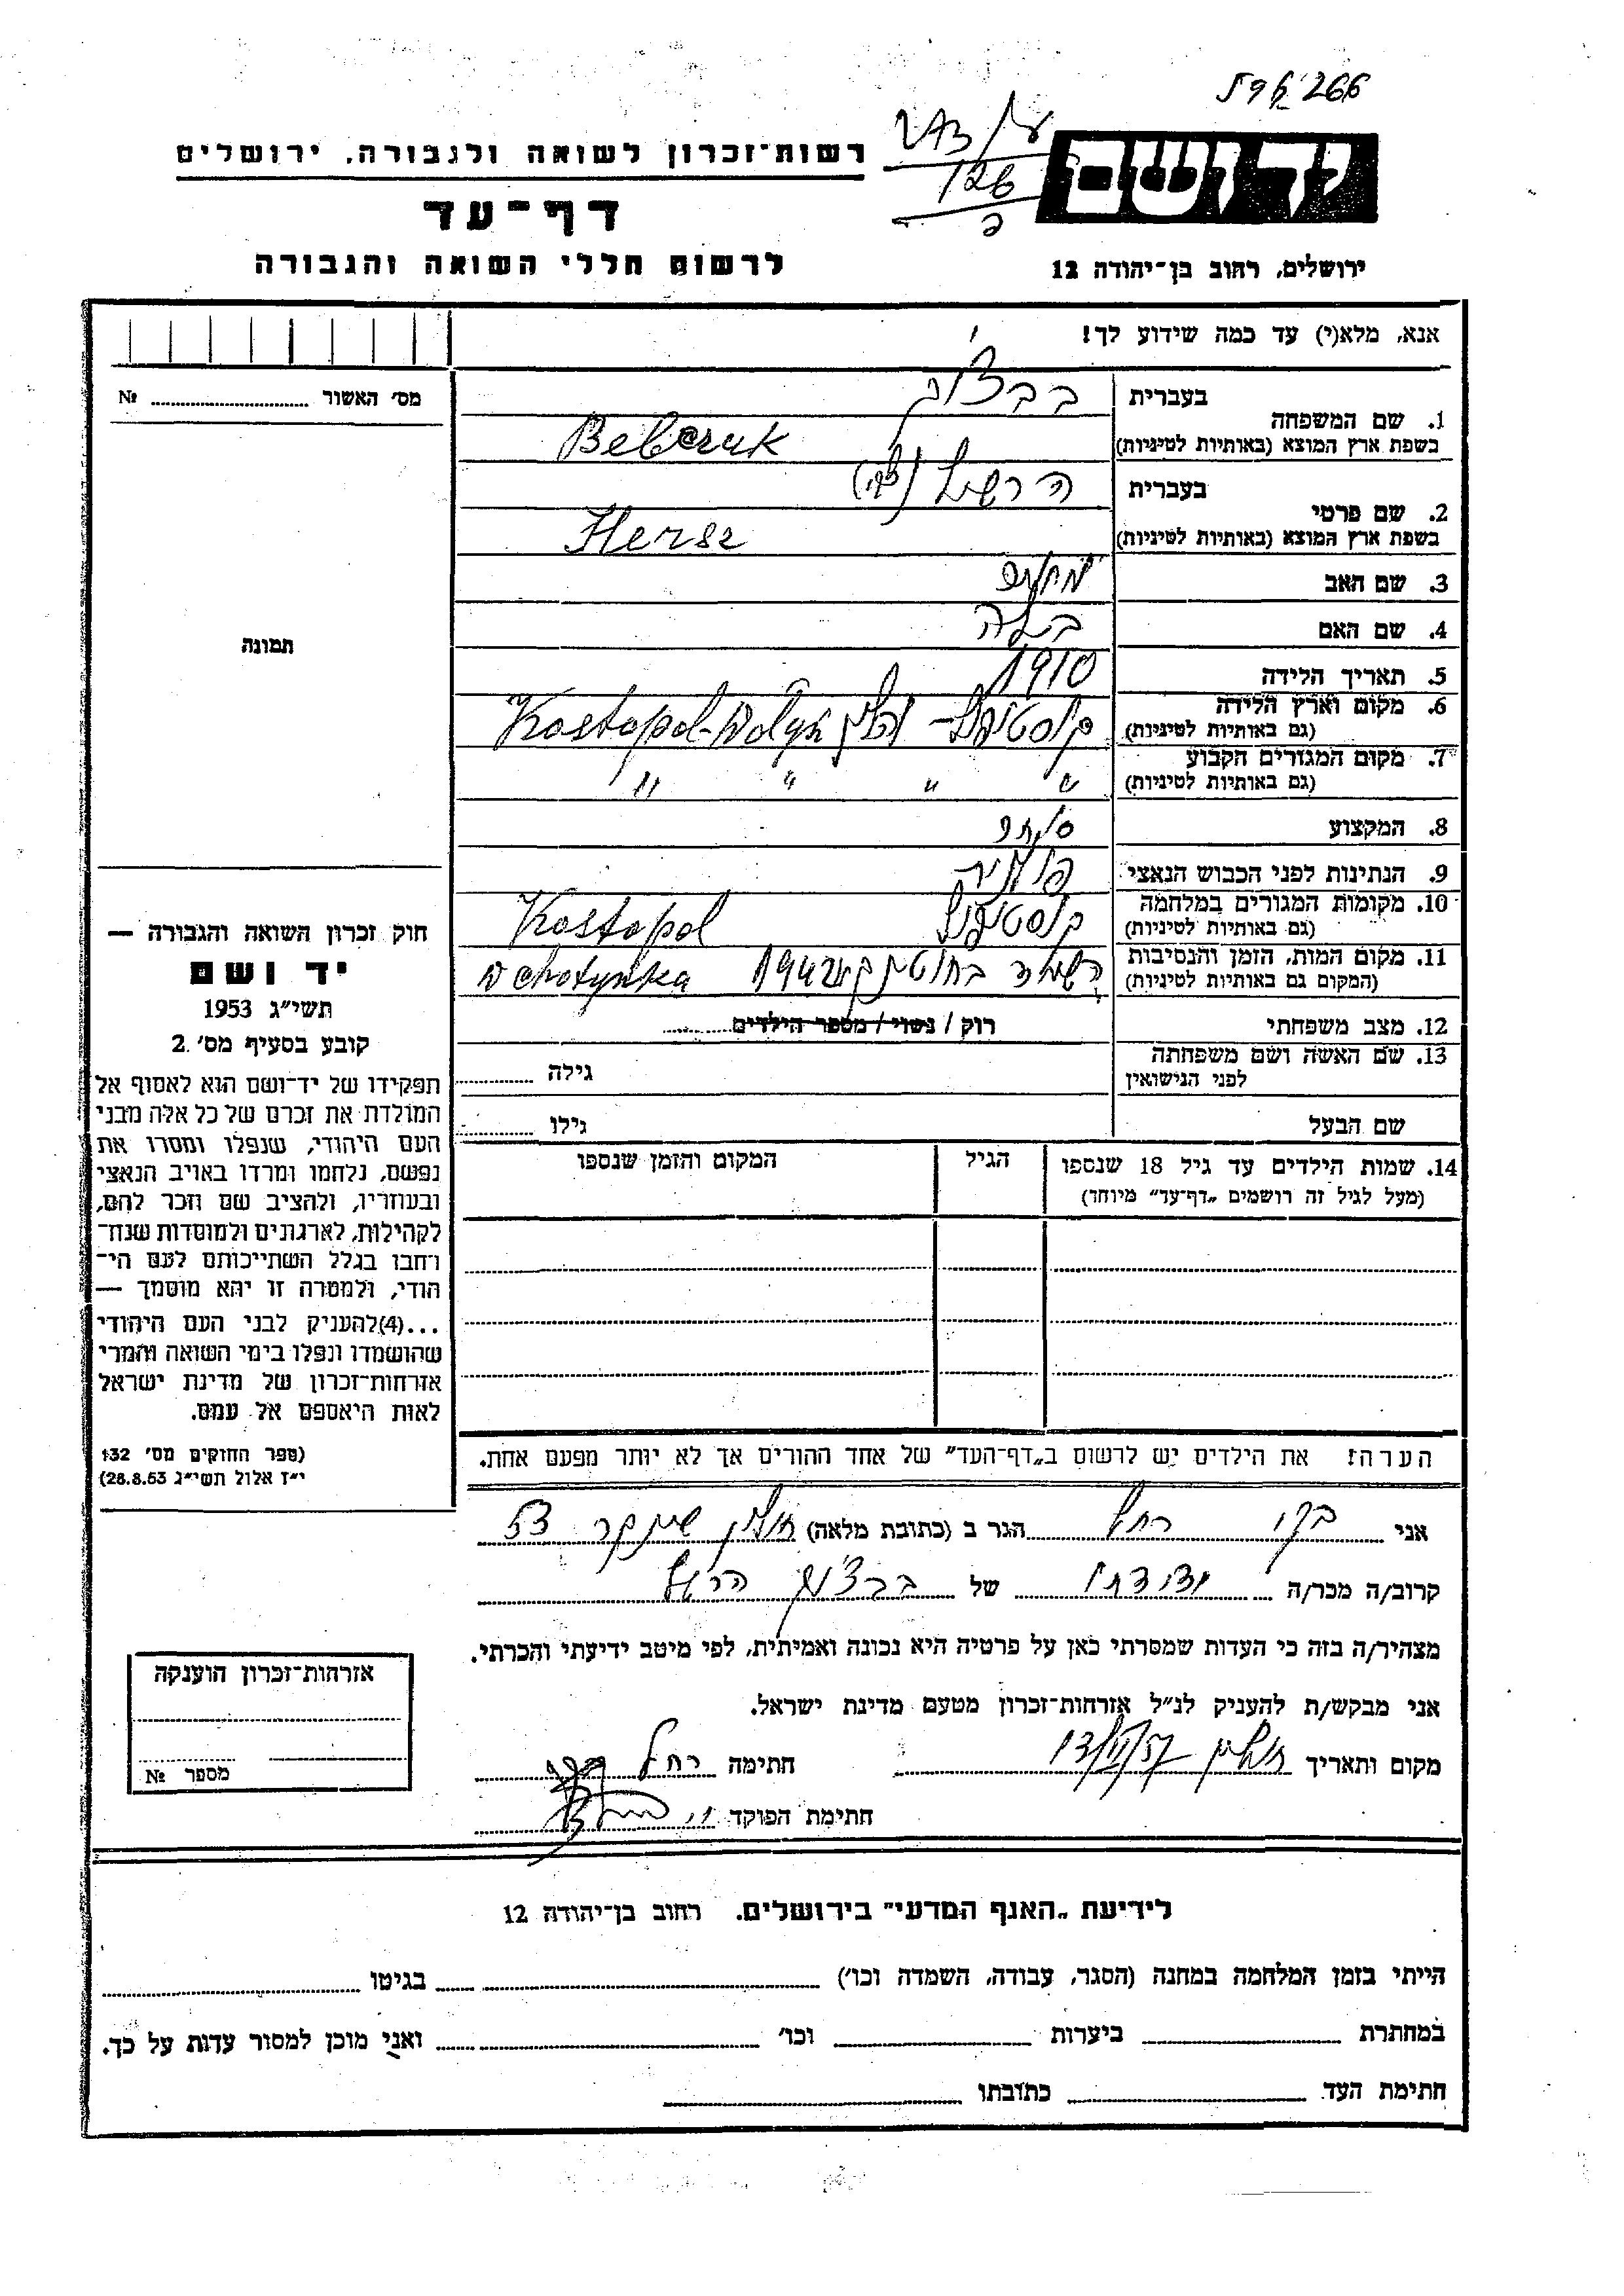 266
רשות־זכרון לשואה ולגבורה, ירושלים
יד ושם
126
דף־עד
לרשום חללי השואה והגבורה
ירושלים, רחוב בן־יהודה 12
אנא, מלא(י) עד כמה שידוע לך!
מס׳ האשור № 
1. שם המשפחה
בעברית בבצ'וק
בשפת ארץ המוצא (באותיות לטיניות) Bebczuk
2. שם פרטי
בעברית הרשל (צבי)
בשפת ארץ המוצא (באותיות לטיניות) Hersz
3. שם האב
4. שם האם ביילה
5. תאריך הלידה 1910
6. מקום וארץ הלידה
(גם באותיות לטיניות) קוסטופול - ווהלין Kostopol-Wolyn
7. מקום המגורים הקבוע
(גם באותיות לטיניות) " " " "
8. המקצוע סוחר
9. הנתינות לפני הכבוש הנאצי פולנית
10. מקומות המגורים במלחמה
(גם באותיות לטיניות) קוסטופול Kostopol
11. מקום המות, הזמן והנסיבות
(המקום גם באותיות לטיניות) 1942 w Chotynka
12. מצב משפחתי רוק / נשוי / מספר הילדים
13. שם האשה ושם משפחתה
לפני הנישואין גילה
שם הבעל גילו
14. שמות הילדים עד גיל 18 שנספו
(מעל לגיל זה רושמים „דף־עד״ מיוחד)
הגיל
המקום והזמן שנספו
הערה: את הילדים יש לרשום ב„דף־העד״ של אחד ההורים אך לא יותר מפעם אחת.
תמונה
חוק זכרון השואה והגבורה —
יד ושם
תשי״ג 1953
קובע בסעיף מס׳ 2.
תפקידו של יד־ושם הוא לאסוף אל
המולדת את זכרם של כל אלה מבני
העם היהודי, שנפלו ומסרו את
נפשם, נלחמו ומרדו באויב הנאצי
ובעוזריו, ולהציב שם וזכר להם,
לקהילות, לארגונים ולמוסדות שנח־
רחבו בגלל השתייכותם לעם הי־
הודי, ולמטרה זו יהא מוסמך —
...(4)להעניק לבני העם היהודי
שהושמדו ונפלו בימי השואה והמרי
אזרחות־זכרון של מדינת ישראל
לאות היאספם אל עמם.
(ספר החוקים מס׳ 132
י״ז אלול תשי״ג 28.8.53)
אני רחל הגר ב (כתובת מלאה) חולון שינקר 53
קרוב/ה מכר/ה ידידתו של בבצ'וק הרשל
מצהיר/ה בזה כי העדות שמסרתי כאן על פרטיה היא נכונה ואמיתית, לפי מיטב ידיעתי והכרתי.
אני מבקש/ת להעניק לנ״ל אזרחות־זכרון מטעם מדינת ישראל.
מקום ותאריך חולון חתימה רחל
חתימת הפוקד
אזרחות־זכרון הוענקה
מספר №
לידיעת „האגף המדעי״ בירושלים. רחוב בן־יהודה 12
הייתי בזמן המלחמה במחנה (הסגר, עבודה, השמדה וכו׳) בגיטו
במחתרת ביערות וכו׳ ואני מוכן למסור עדות על כך.
חתימת העד כתובתו